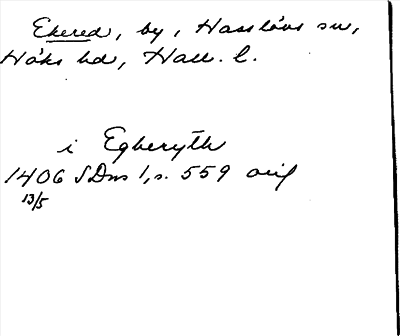 Ekered, by, Hasslövs sn,
Höks hd, Hall. l.
i Egheryth
1406 SDns 1, s. 559 orig
13/5